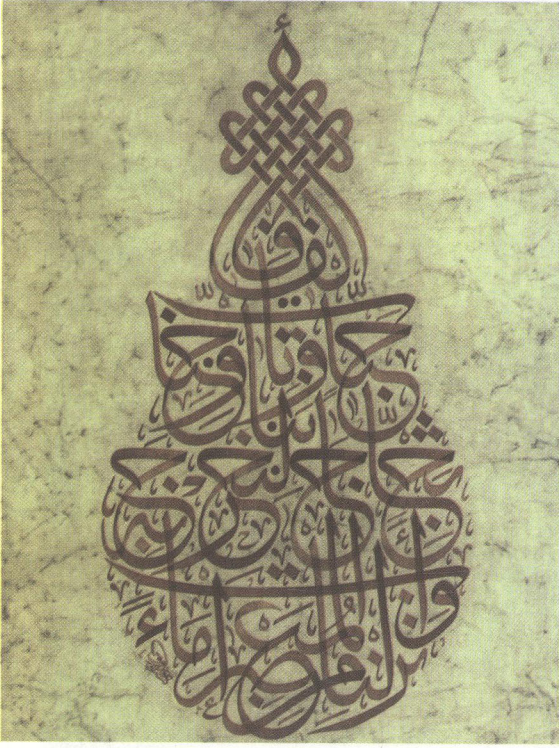 وأنزلنا من المعصرات ماءً
ثجاجًا لنخرج به
حبًّا ونباتًا وجنّات
ألفافًا